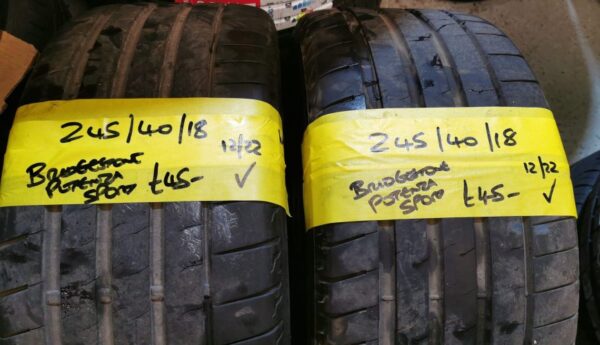 245/40/18
12/22
BRIDGESTONE
POTENZA
SPORT
£45-
✓
245/40/18
12/22
BRIDGESTONE
POTENZA
SPORT
£45-
✓